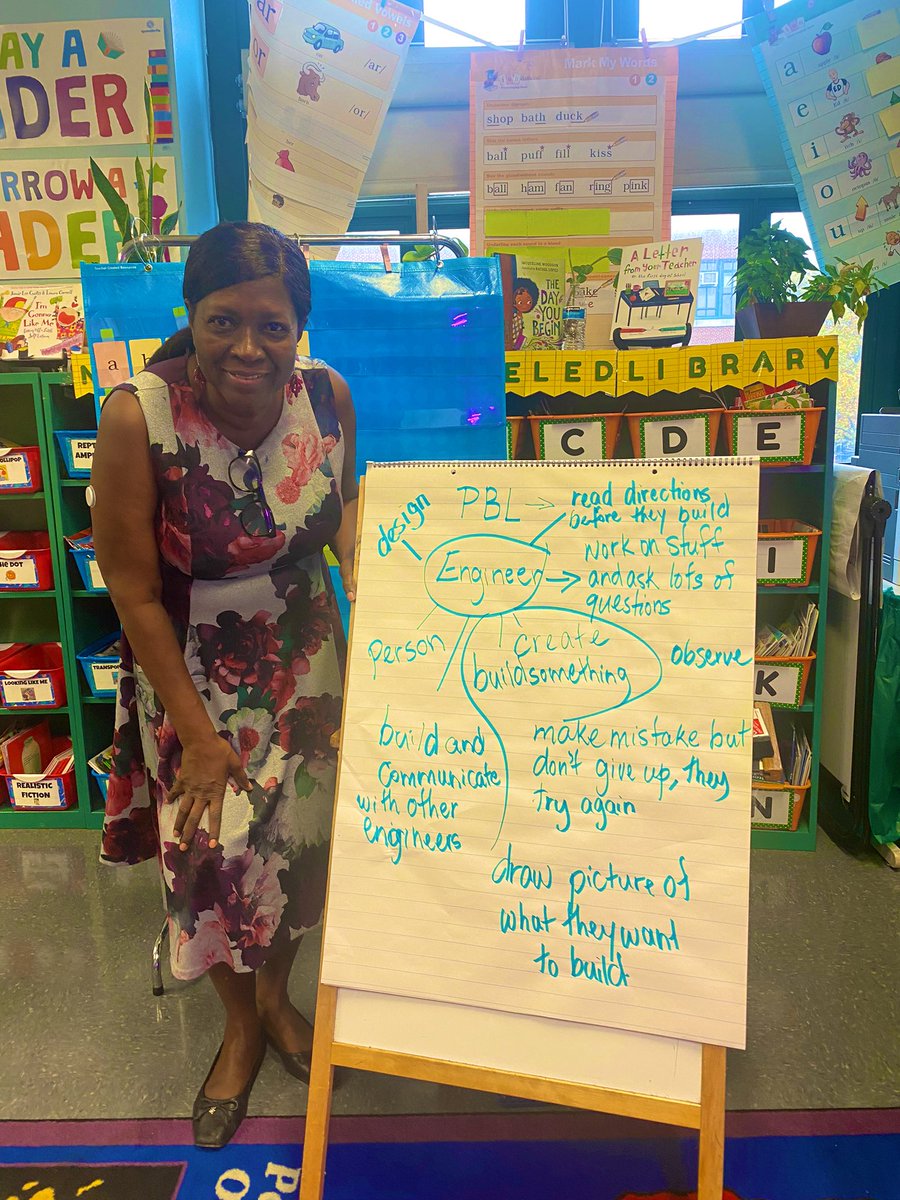 /ar/
/or/
Mark My Words
1 2
shop bath duck
ball puff fill kiss
ball ham fan ring pink
a
e
i
o
u
A Letter
from Your Teacher
THE
DAY
YOU
BEGIN
I'm
Gonna
Like Me
a
LIBRARY
C D E
I
K
N
THE DOT
LOOKING LIKE ME
REALISTIC
FICTION
design
PBL → read directions
before they build
Engineer → Work on Stuff
and ask lots of
questions
person
create
build something
observe
build and
communicate
with other
engineers
make mistake but
don't give up, they
try again
draw picture of
what they want
to build